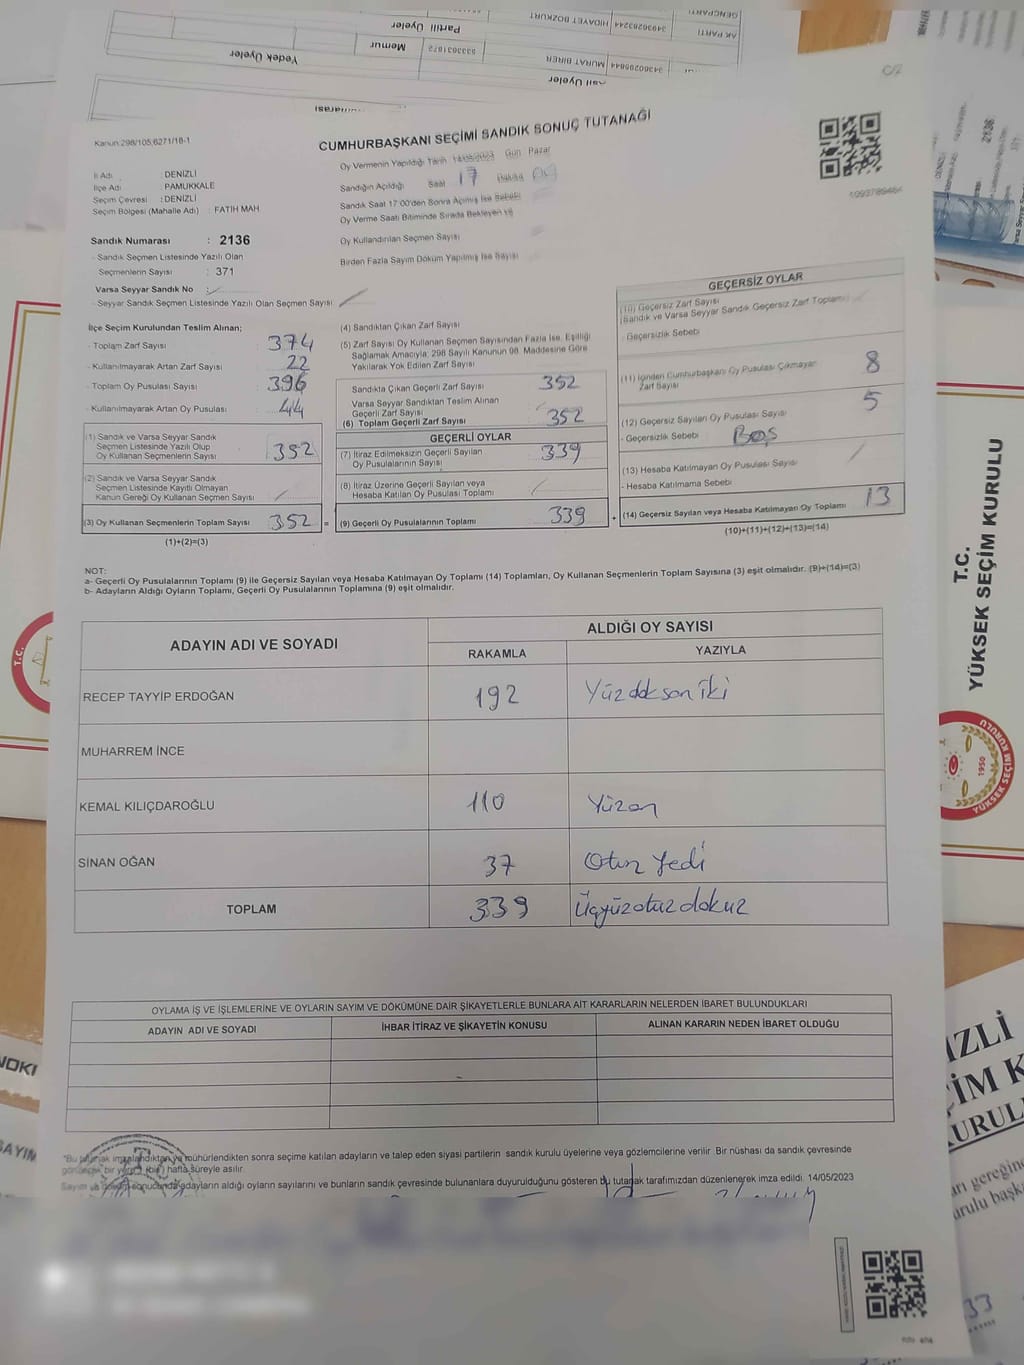 Kanun:298/105;6271/18-1
CUMHURBAŞKANI SEÇİMİ SANDIK SONUÇ TUTANAĞI
İl Adı : DENİZLİ
İlçe Adı : PAMUKKALE
Seçim Çevresi : DENİZLİ
Seçim Bölgesi (Mahalle Adı) : FATİH MAH.
Oy Vermenin Yapıldığı Tarih 14/05/2023 Gün Pazar
Sandığın Açıldığı Saat 17 Dakika
Sandık Saat 17:00'den Sonra Açılmış İse Sebebi
Oy Verme Saati Bitiminde Sırada Bekleyen
Oy Kullandırılan Seçmen Sayısı
Birden Fazla Sayım Döküm Yapılmış İse Sayısı
Sandık Numarası : 2136
- Sandık Seçmen Listesinde Yazılı Olan
Seçmenlerin Sayısı : 371
Varsa Seyyar Sandık No :
- Seyyar Sandık Seçmen Listesinde Yazılı Olan Seçmen Sayısı
İlçe Seçim Kurulundan Teslim Alınan;
- Toplam Zarf Sayısı 374
- Kullanılmayarak Artan Zarf Sayısı 22
- Toplam Oy Pusulası Sayısı 396
- Kullanılmayarak Artan Oy Pusulası 44
(1) Sandık ve Varsa Seyyar Sandık
Seçmen Listesinde Yazılı Olup
Oy Kullanan Seçmenlerin Sayısı 352
(2) Sandık ve Varsa Seyyar Sandık
Seçmen Listesinde Kayıtlı Olmayan
Kanun Gereği Oy Kullanan Seçmen Sayısı
(3) Oy Kullanan Seçmenlerin Toplam Sayısı 352 =
(1)+(2)=(3)
(4) Sandıktan Çıkan Zarf Sayısı
(5) Zarf Sayısı Oy Kullanan Seçmen Sayısından Fazla İse, Eşitliği
Sağlamak Amacıyla; 298 Sayılı Kanunun 98. Maddesine Göre
Yakılarak Yok Edilen Zarf Sayısı
Sandıkta Çıkan Geçerli Zarf Sayısı 352
Varsa Seyyar Sandıktan Teslim Alınan
Geçerli Zarf Sayısı
(6) Toplam Geçerli Zarf Sayısı 352
GEÇERLİ OYLAR
(7) İtiraz Edilmeksizin Geçerli Sayılan
Oy Pusulasının Sayısı 339
(8) İtiraz Üzerine Geçerli Sayılan veya
Hesaba Katılan Oy Pusulası Toplamı
(9) Geçerli Oy Pusulalarının Toplamı 339 +
GEÇERSİZ OYLAR
(10) Geçersiz Zarf Sayısı
(Sandık ve Varsa Seyyar Sandık Geçersiz Zarf Toplamı)
- Geçersizlik Sebebi
(11) İçinden Cumhurbaşkanı Oy Pusulası Çıkmayan
Zarf Sayısı 8
(12) Geçersiz Sayılan Oy Pusulası Sayısı 5
- Geçersizlik Sebebi Boş
(13) Hesaba Katılmayan Oy Pusulası Sayısı
- Hesaba Katılmama Sebebi
(14) Geçersiz Sayılan veya Hesaba Katılmayan Oy Toplamı 13
(10)+(11)+(12)+(13)=(14)
NOT:
a- Geçerli Oy Pusulalarının Toplamı (9) ile Geçersiz Sayılan veya Hesaba Katılmayan Oy Toplamı (14) Toplamları, Oy Kullanan Seçmenlerin Toplam Sayısına (3) eşit olmalıdır. (9)+(14)=(3)
b- Adayların Aldığı Oyların Toplamı, Geçerli Oy Pusulalarının Toplamına (9) eşit olmalıdır.
ADAYIN ADI VE SOYADI
ALDIĞI OY SAYISI
RAKAMLA YAZIYLA
RECEP TAYYİP ERDOĞAN 192 Yüzdoksan iki
MUHARREM İNCE
KEMAL KILIÇDAROĞLU 110 Yüzon
SİNAN OĞAN 37 Otuz Yedi
TOPLAM 339 Üçyüzotuz dokuz
OYLAMA İŞ VE İŞLEMLERİNE VE OYLARIN SAYIM VE DÖKÜMÜNE DAİR ŞİKAYETLERLE BUNLARA AİT KARARLARIN NELERDEN İBARET BULUNDUKLARI
ADAYIN ADI VE SOYADI İHBAR İTİRAZ VE ŞİKAYETİN KONUSU ALINAN KARARIN NEDEN İBARET OLDUĞU
*Bu tutanak imzalandıktan ve mühürlendikten sonra seçime katılan adayların ve talep eden siyasi partilerin sandık kurulu üyelerine veya gözlemcilerine verilir. Bir nüshası da sandık çevresinde
görülecek bir yere 1 (bir) hafta süreyle asılır.
Sayım ve döküm sonucunda adayların aldığı oyların sayılarını ve bunların sandık çevresinde bulunanlara duyurulduğunu gösteren bu tutanak tarafımızdan düzenlenerek imza edildi. 14/05/2023
T.C.
YÜKSEK SEÇİM KURULU
YÜKSEK SEÇİM KURULU
1950
T.C.
Yedek Üyeler
Memur
Partili Üyeler
MURAT BİRER
HİDAYET BOZKURT
AK PARTİ
2136
33